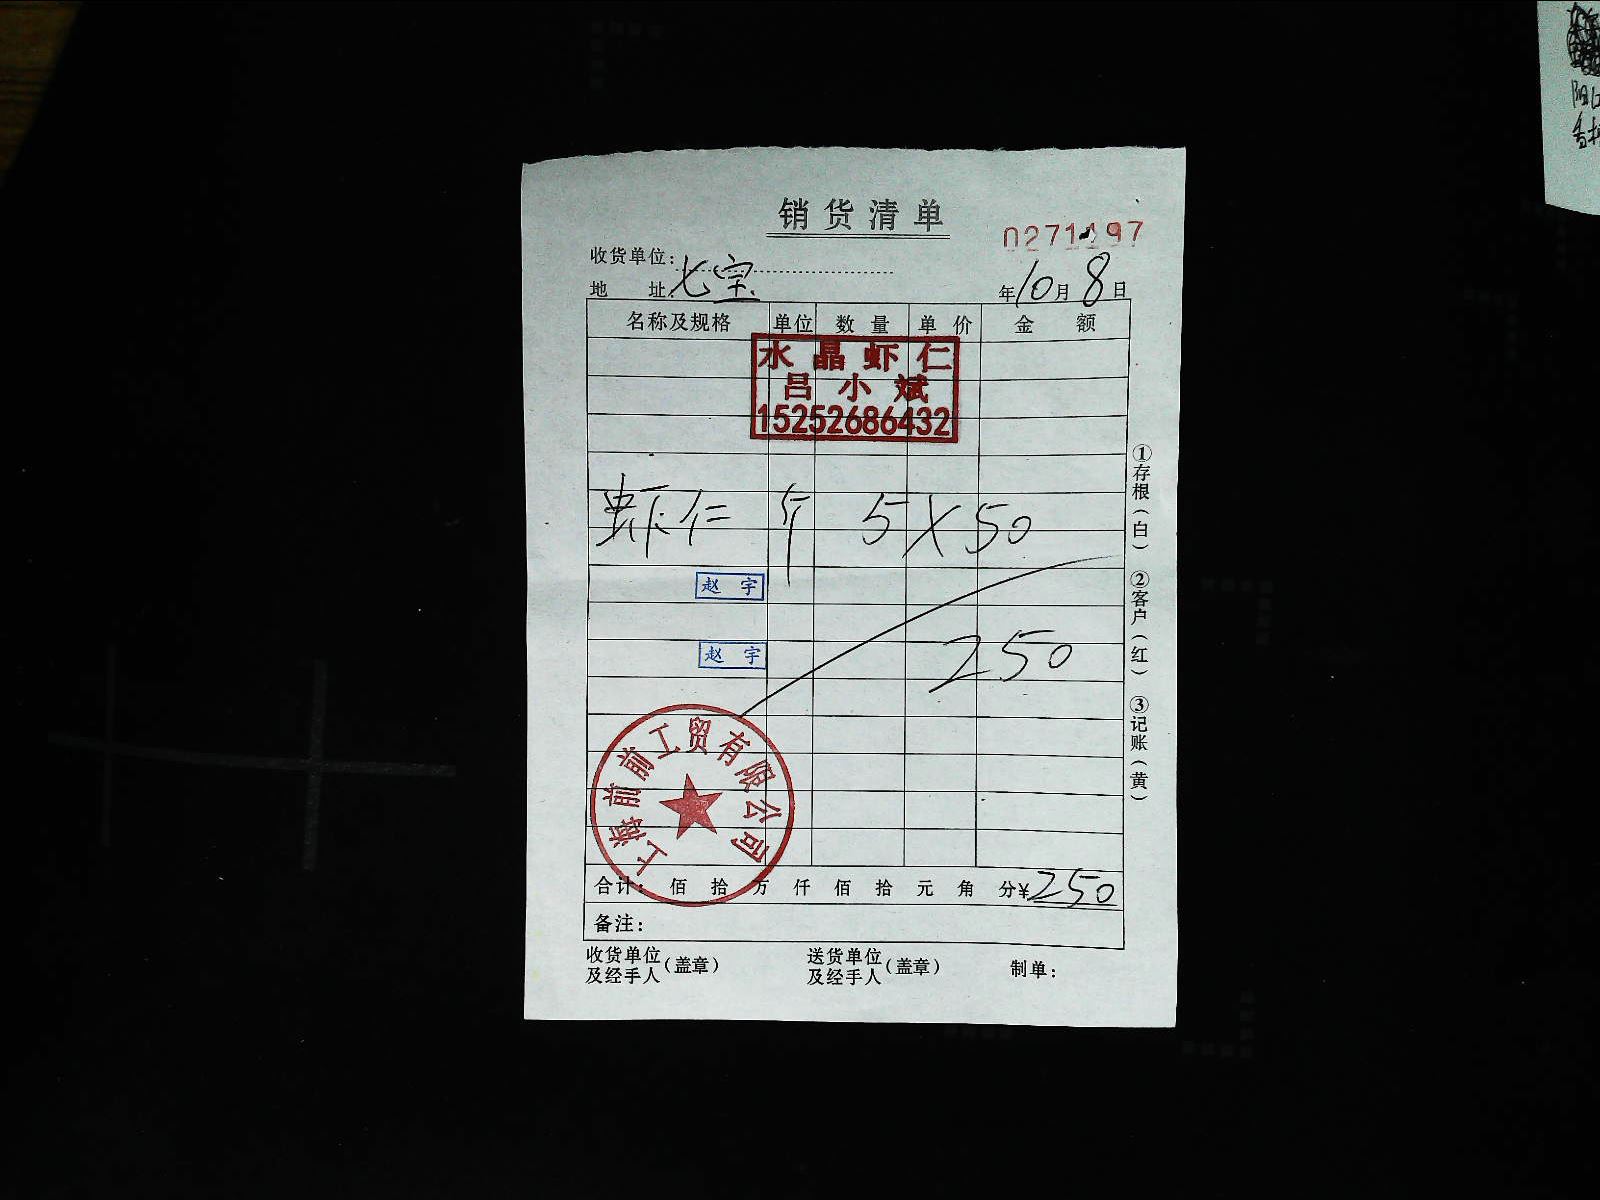 销货清单
0271197
收货单位：
地 址：七宝
年10月8日
名称及规格 单位 数量 单价 金额
水晶虾仁
吕小斌
15252686432
虾仁 斤 5×50
赵宇
250
赵宇
上海前前工贸有限公司
合计： 佰 拾 万 仟 佰 拾 元 角 分¥250
备注：
收货单位及经手人（盖章） 送货单位及经手人（盖章） 制单：
①存根（白） ②客户（红） ③记账（黄）